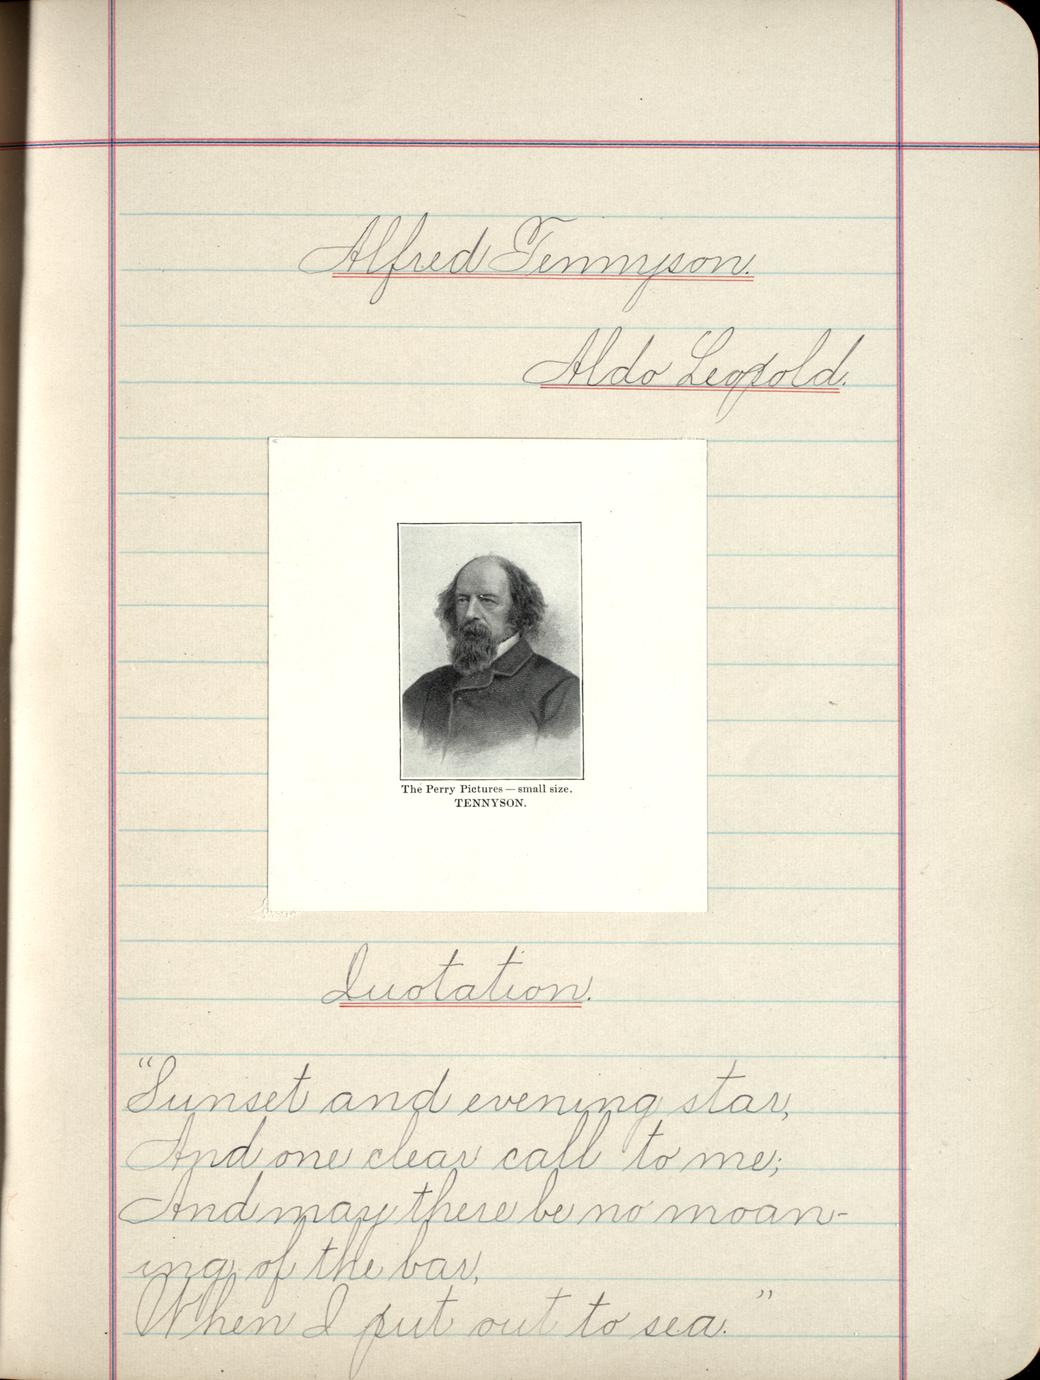 Alfred Tennyson.
Aldo Leopold.
The Perry Pictures — small size.
TENNYSON.
Quotation.
"Sunset and evening star,
And one clear call to me;
And may there be no moan-
ing of the bar,
When I put out to sea."